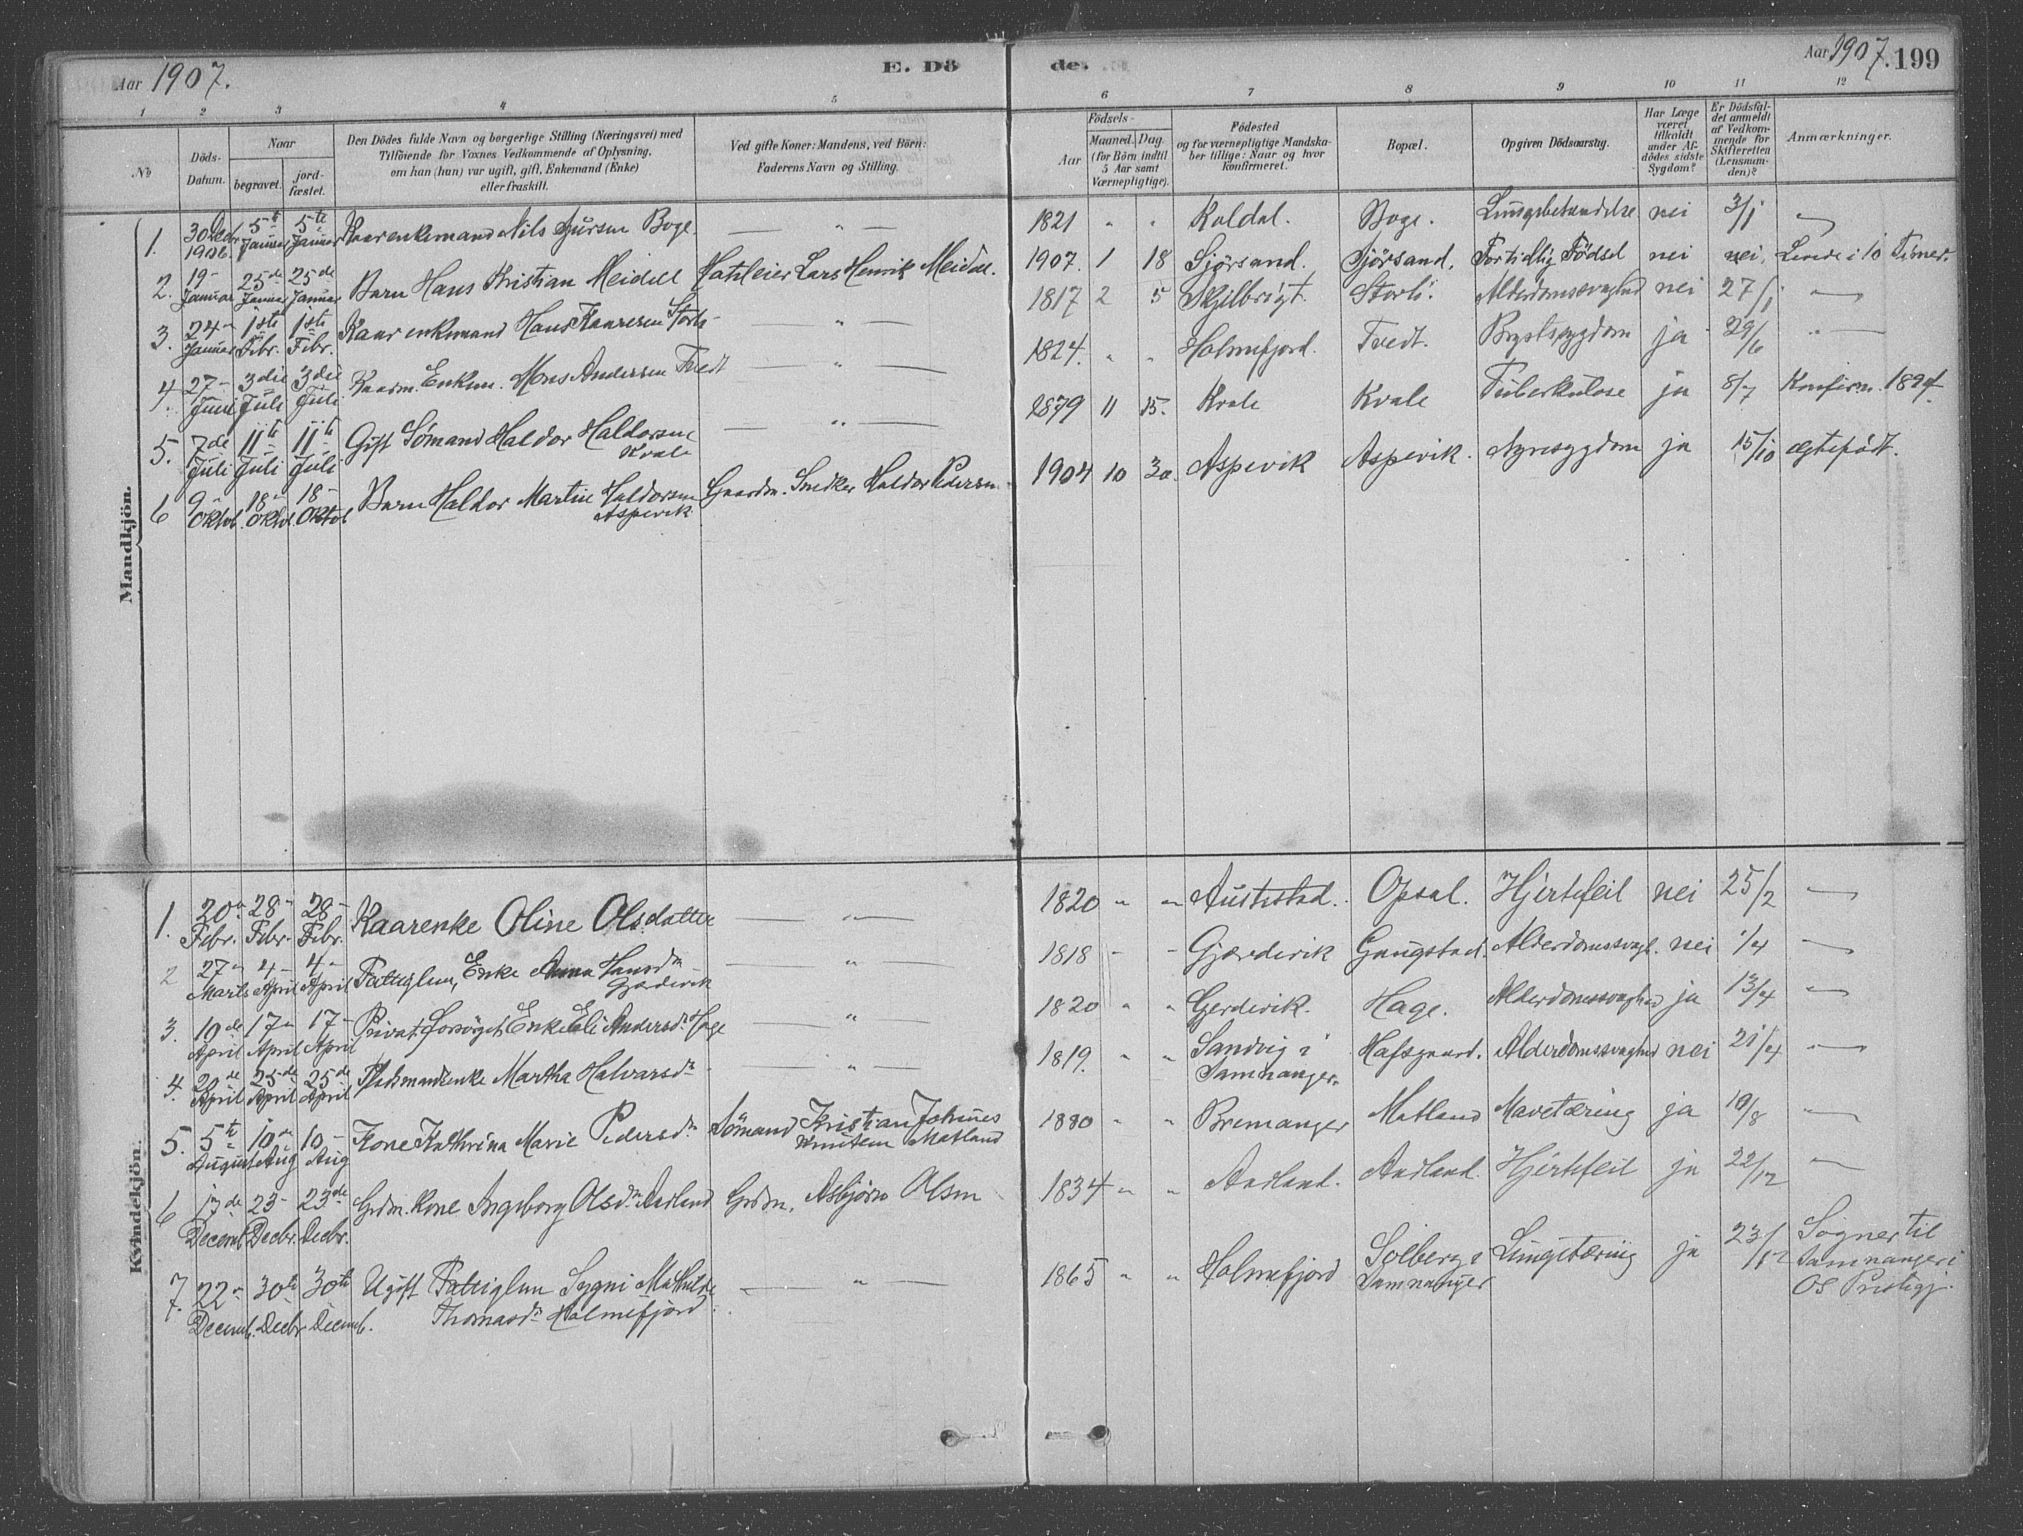 Aar 1907.
E. Dö
de.
Aar 1907. 199
1 2 3 4 5 6 7 8 9 10 11 12
No
Döds-
Datum.
Naar
begravet.
jord-
fæstet.
Den Dödes fulde Navn og borgerlige Stilling (Næringsvei) med
Tilföiende for Voxnes Vedkommende af Oplysning,
om han (hun) var ugift, gift, Enkemand (Enke)
eller fraskilt.
Ved gifte Koner: Mandens, ved Börn:
Faderens Navn og Stilling.
Födsels-
Aar
Maaned. Dag.
(for Börn indtil
5 Aar samt
Værnepligtige).
Födested
og for værnepligtige Mandska-
ber tillige: Naar og hvor
konfirmeret.
Bopæl.
Opgiven Dödsaarsag.
Har Læge
været
tilkaldt
under Af-
dødes sidste
Sygdom?
Er Dödsfal-
det anmeldt
af Vedkom-
mende for
Skifteretten
(Lensman-
den)?
Anmærkninger.
Mandkjön.
1. 30 Decbr. 1906. 5te Januar 5te Januar Kaarenkemand Nils Sjursen Boge. — " — 1821 " " Koldal. Boge. Lungebetændelse nei 3/1 "
2. 19- Januar 25de Januar 25de Januar Barn Hans Kristian Meidell Lars Henrik Meidel. 1907. 1 18 Sjørsand. Sjørsand. Fortidlig Fødsel nei nei. Levede i 10 Timer.
3. 24- Januar 1ste Febr. 1ste Febr. Kaarenkemand Hans Storli — " — 1817 2 5 Skjelbrigt. Storli. Alderdomssvaghed nei 27/1 "
4. 27- Juni 3die Juli 3die Juli Kaarm. Enkem. Mons Andersen Tvedt — " — 1824. " " Holmefjord. Tvedt. Brystsygdom ja 29/6 "
5. 7de Juli 11te Juli 11te Juli Gift Sömand Haldor Haldorsen
Kvale — " — 1879 11 15. Kvale Kvale Tuberkulose ja 8/7 Konfirm. 1894.
6 9- Oktob. 18- Oktob. 18- Oktob Barn Haldor Martin Haldorsen
Aspevik Gaardm. Snedker Haldor Pedersen 1904 10 30. Aspevik Aspevik. Nyresygdom ja 15/10 ægtefødt.
Kvindekjön.
1. 20- Febr. 28- Febr. 28- Febr. Kaarenke Oline Olsdatter — " — 1820 " " Austestad. Opsal. Hjertefeil nei 25/2 "
2 27- Marts 4- April 4- April Fattiglem, Enke Anna Hansdr
Gjærdevik — " — 1818 - - Gjærdevik Gaugstad. Alderdomssvagh. nei 1/4 "
3. 10de April 17- April 17- April Privat forsörget Enke Eli Andersdr Hage — " — 1820 " " Gjerdevik. Hage. Alderdomssvaghed ja 13/4 "
4. 20de April 25de April 25de April Pladsmandsenke Martha Halvarsdr — " — 1819. " " Sandvig i
Samnanger. Hafsgaard. Alderdomssvaghed nei 21/4 "
5. 5te August 10de Aug 10- Aug Kone Kathrina Marie Pedersdr Sömand Kristian Johannes
Knutsen Matland 1880 " " Bremanger Matland Mavetæring ja 10/8 "
6 17de Decemb. 23- Decbr. 23de Decbr. Grdm. Kone Ingeborg Olsdr Aadland Grdm. Asbjørn Olsen 1834 " " Aadland. Aadland. Hjertefeil ja 22/12 "
7. 22- Decemb. 30te Decbr 30te Decemb. Ugift Fattiglem Sygni Mathilde
Thomasdr Holmefjord. — " — 1865 " " Holmefjord Solberg i
Samnanger Lungetæring ja 23/12 Sogner til
Samnanger i
Os Prestegj.